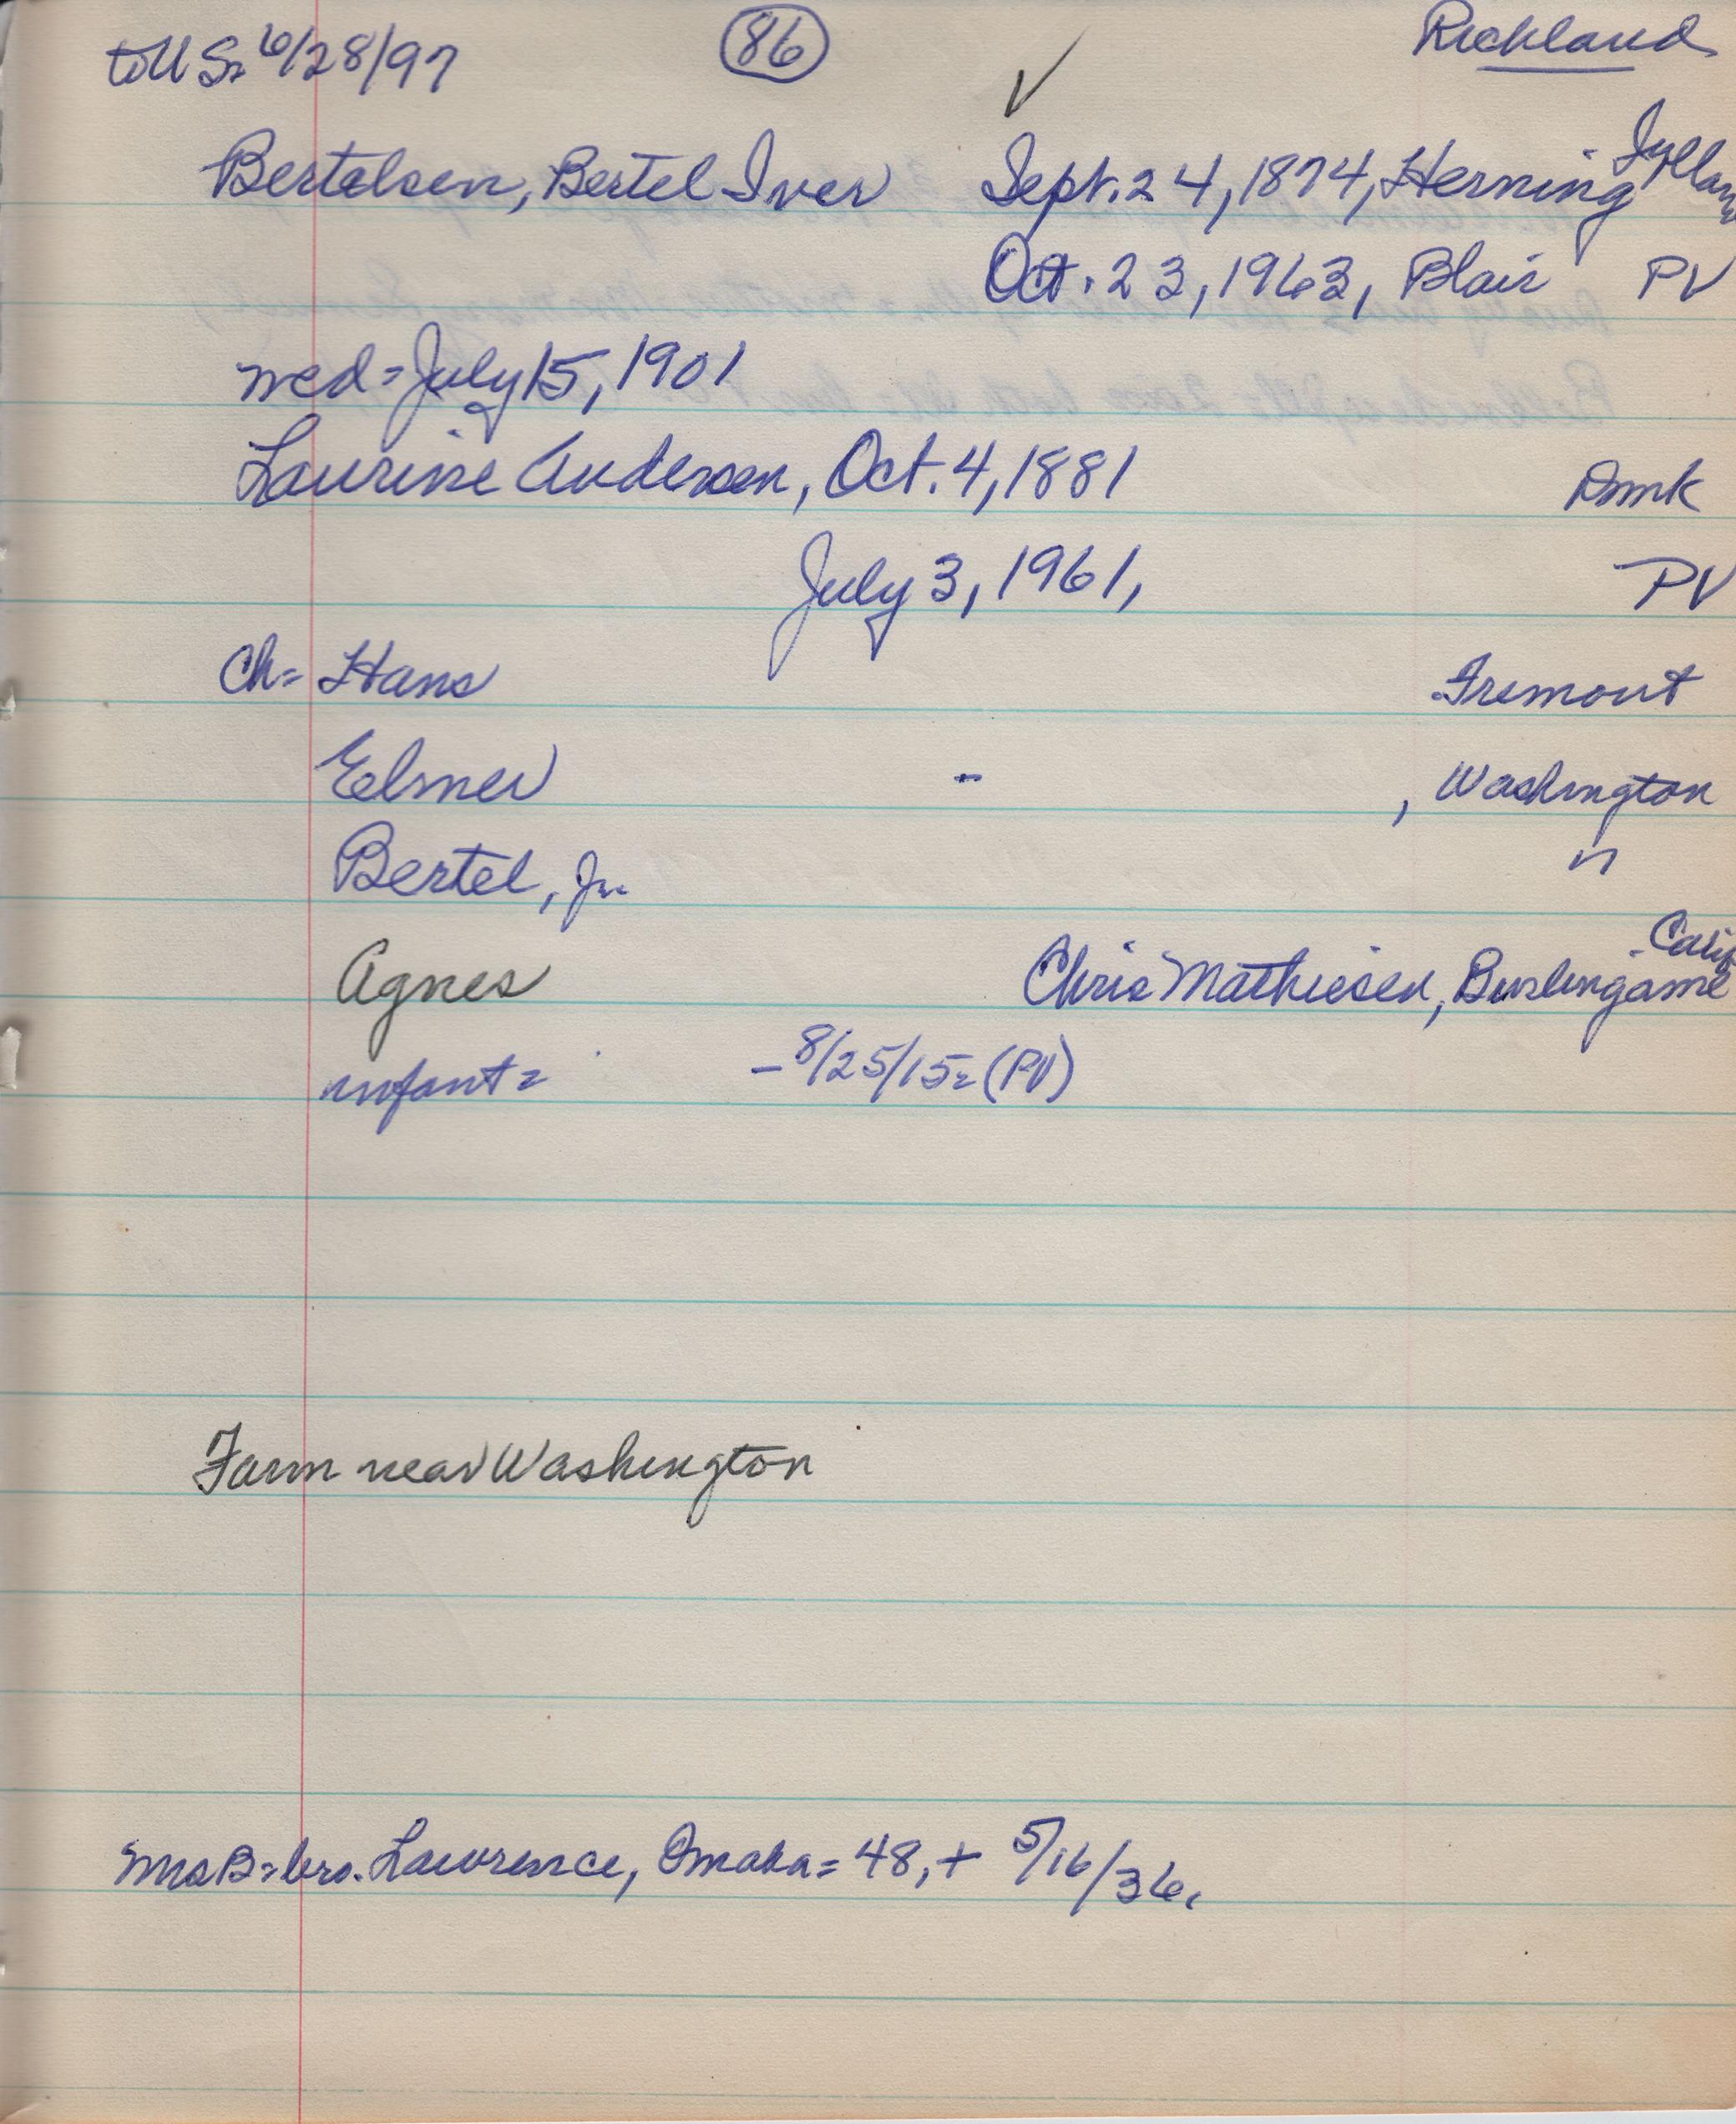 to U S= 6/28/97 86 Richland
✓
Bertelsen, Bertel Iver Sept. 24, 1874, Herning - Jyllan
Oct. 23, 1963, Blair PV
wed= July 15, 1901
Laurine Andersen, Oct. 4, 1881 Dmk
July 3, 1961, PV
Ch= Hans Fremont
Elmer - , Washington
Bertel, Jr. "
Agnes Chris Mathiesen, Burlingame - Calif
infant= - 8/25/15= (PV)
Farm near Washington
Mrs B= bro. Lawrence, Omaha= 48, + 5/16/36.